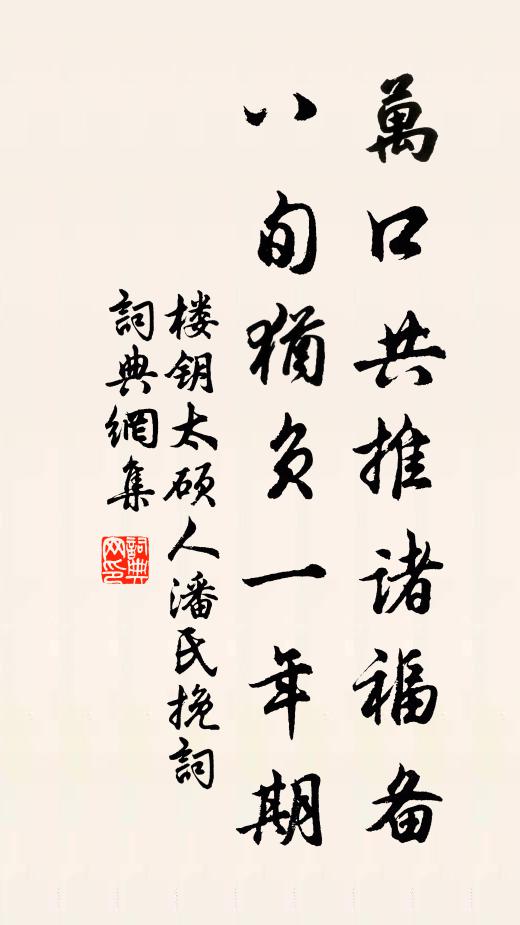 萬口共推诸福备
八旬猶负一年期
楼钥太硕人潘氏挽詞
詞典網集
詞典网印